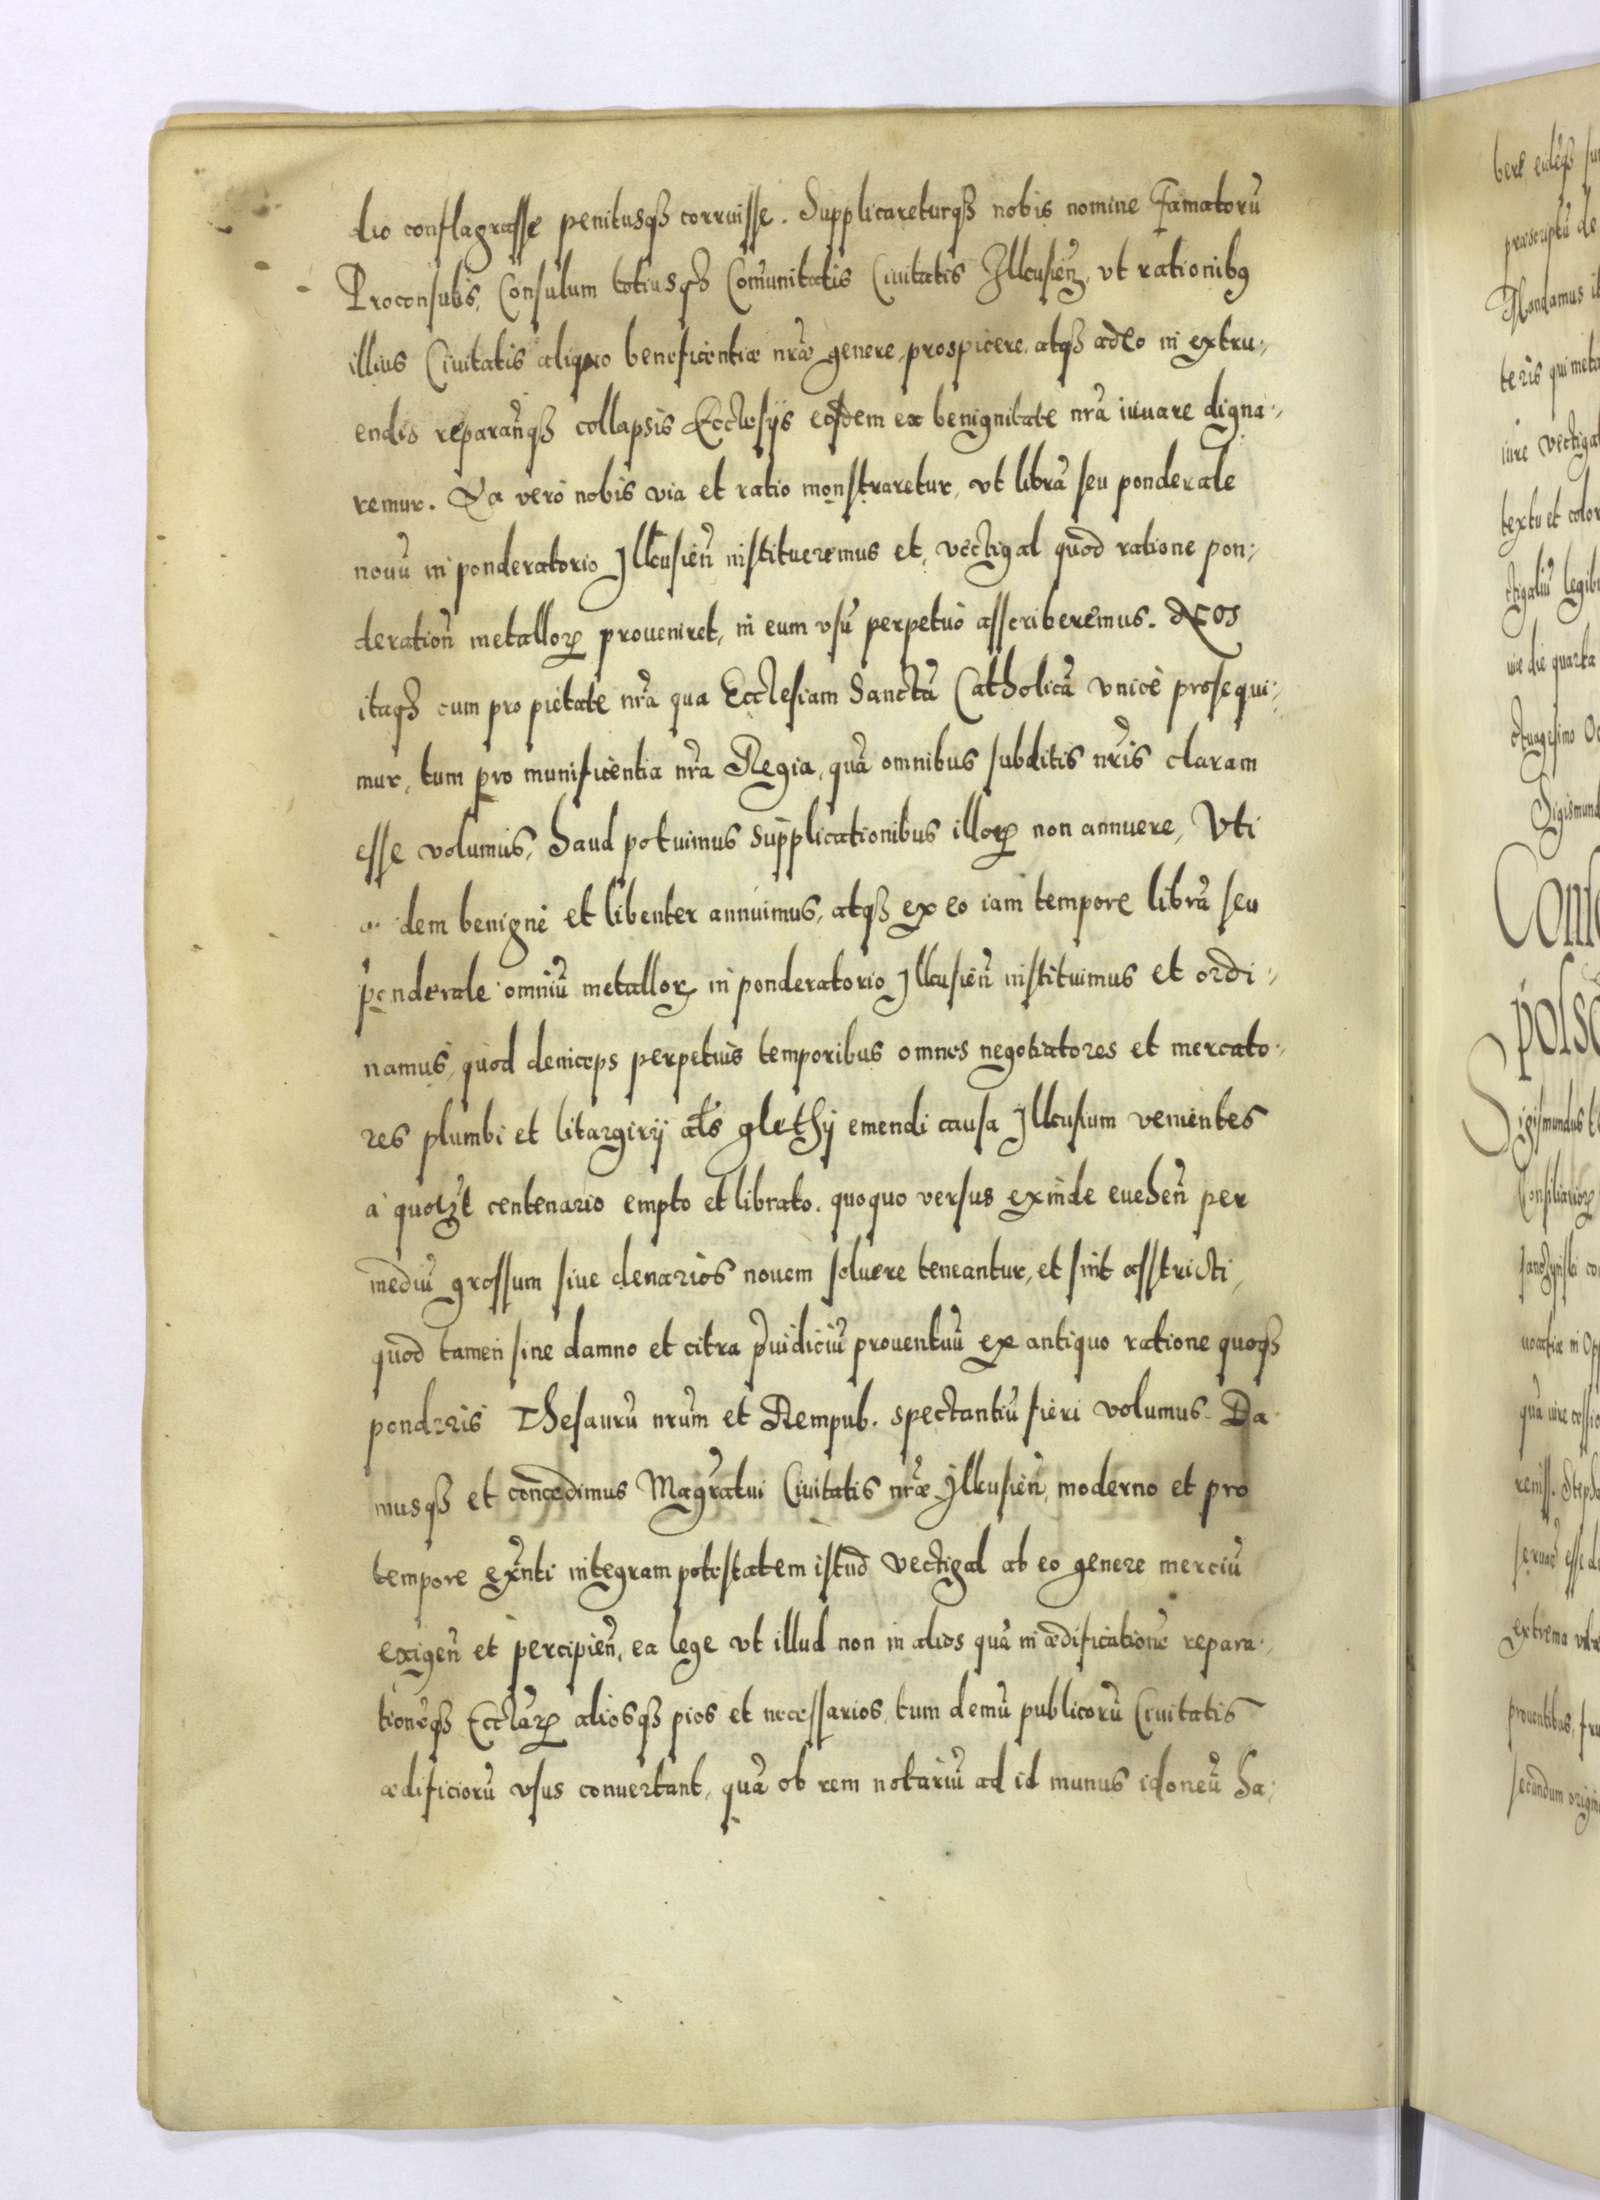 dio conflagrasse penitusq3 corruisse. Supplicareturq3 nobis nomine Famatorũ
Proconsulis, Consulum totiusq3 Com̃unitatis Ciuitatis Illcusieñ, vt rationibꝰ
illius Ciuitatis aliquo beneficentiæ nr̃æ genere, prospicere, atq3 adeo in extru-,
endis reparañq3 collapsis Ecclesijs eosdem ex benignitate nr̃a iuuare digna-,
remur. Ea vero nobis via et ratio monstraretur, vt librã seu ponderale
nouũ in ponderatorio Jllcusieñ institueremus et, vectigal quod ratione pon-,
deratioñ metalloꝝ proueniret, in eum vsũ perpetuò asscriberemus. NOS
itaq3 cum pro pietate nr̃a qua Ecclesiam Sanctã Catholicã vnicè prosequi-,
mur, tum pro munificentia nr̃a Regia, quã omnibus subditis nr̃is claram
esse volumus, haud potuimus supplicationibus illoꝝ non annuere, Vti
dem benignè et libenter annuimus, atq3 ex eo iam tempore librã seu
ponderale omniũ metalloꝝ in ponderatorio Jllcusieñ instituimus et ordi-,
namus, quod deinceps perpetuis temporibus omnes negotiatores et mercato-,
res plumbi et litargirij al̃s glethy emendi causa Jllcusium venientes
à quolꝫt centenario empto et librato, quoquo versus exinde eueheñ per
mediũ grossum siue denarios nouem soluere teneantur, et sint asstricti,
quod tamen sine damno et citra p̃iudiciũ prouentuũ ex antiquo ratione quoq3
ponderis Thesaurũ nr̃um et Rempub. spectantiũ fieri volumus. Da-
musq3 et concedimus Magr̃atui Ciuitatis nr̃æ Jllcusieñ, moderno et pro
tempore exñti integram potestatem istud vectigal ab eo genere merciũ
exigeñ et percipieñ, ea lege vt illud non in alios quã in ædificationẽ repara-,
tionẽq3 Eccl̃aꝝ aliosq3 pios et necessarios, tum demũ publicorũ Ciuitatis
ædificiorũ vsus conuertant, quã ob rem notariũ ad id munus idoneũ ha-,